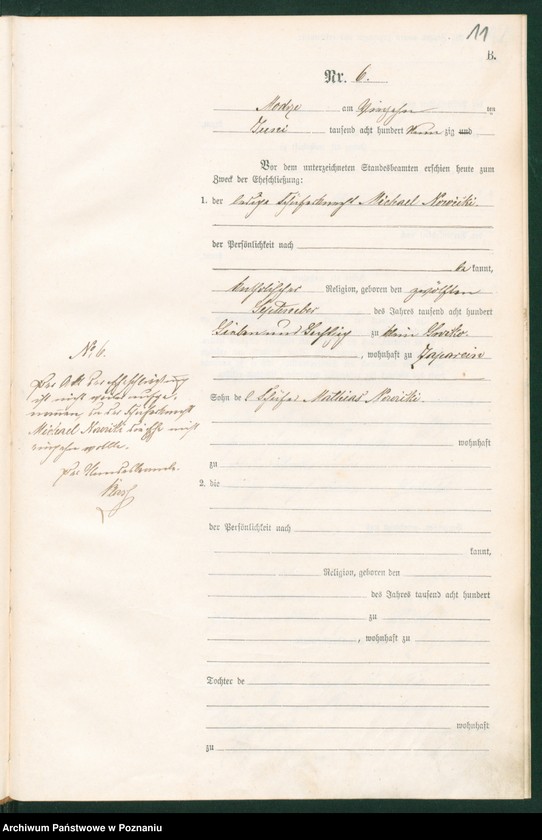 11
B.
Nr. 6.
Modze am ten
Juni tausend acht hundert neun zig und
Vor dem unterzeichneten Standesbeamten erschien heute zum
Zweck der Eheschließung:
1. der ledige Michael Nowicki
der Persönlichkeit nach
be kannt,
katholischer Religion, geboren den zwölften
September des Jahres tausend acht hundert
sieben und sechzig zu
, wohnhaft zu
Sohn de Schäfer Mathias Nowicki
wohnhaft
zu
2. die
der Persönlichkeit nach
kannt,
Religion, geboren den
des Jahres tausend acht hundert
zu
, wohnhaft zu
Tochter de
wohnhaft
zu
No 6.
Der Akt der Eheschließung
ist nicht
da der
Michael Nowicki nicht
eingehen wollte.
Der Standesbeamte.
Archiwum Państwowe w Poznaniu